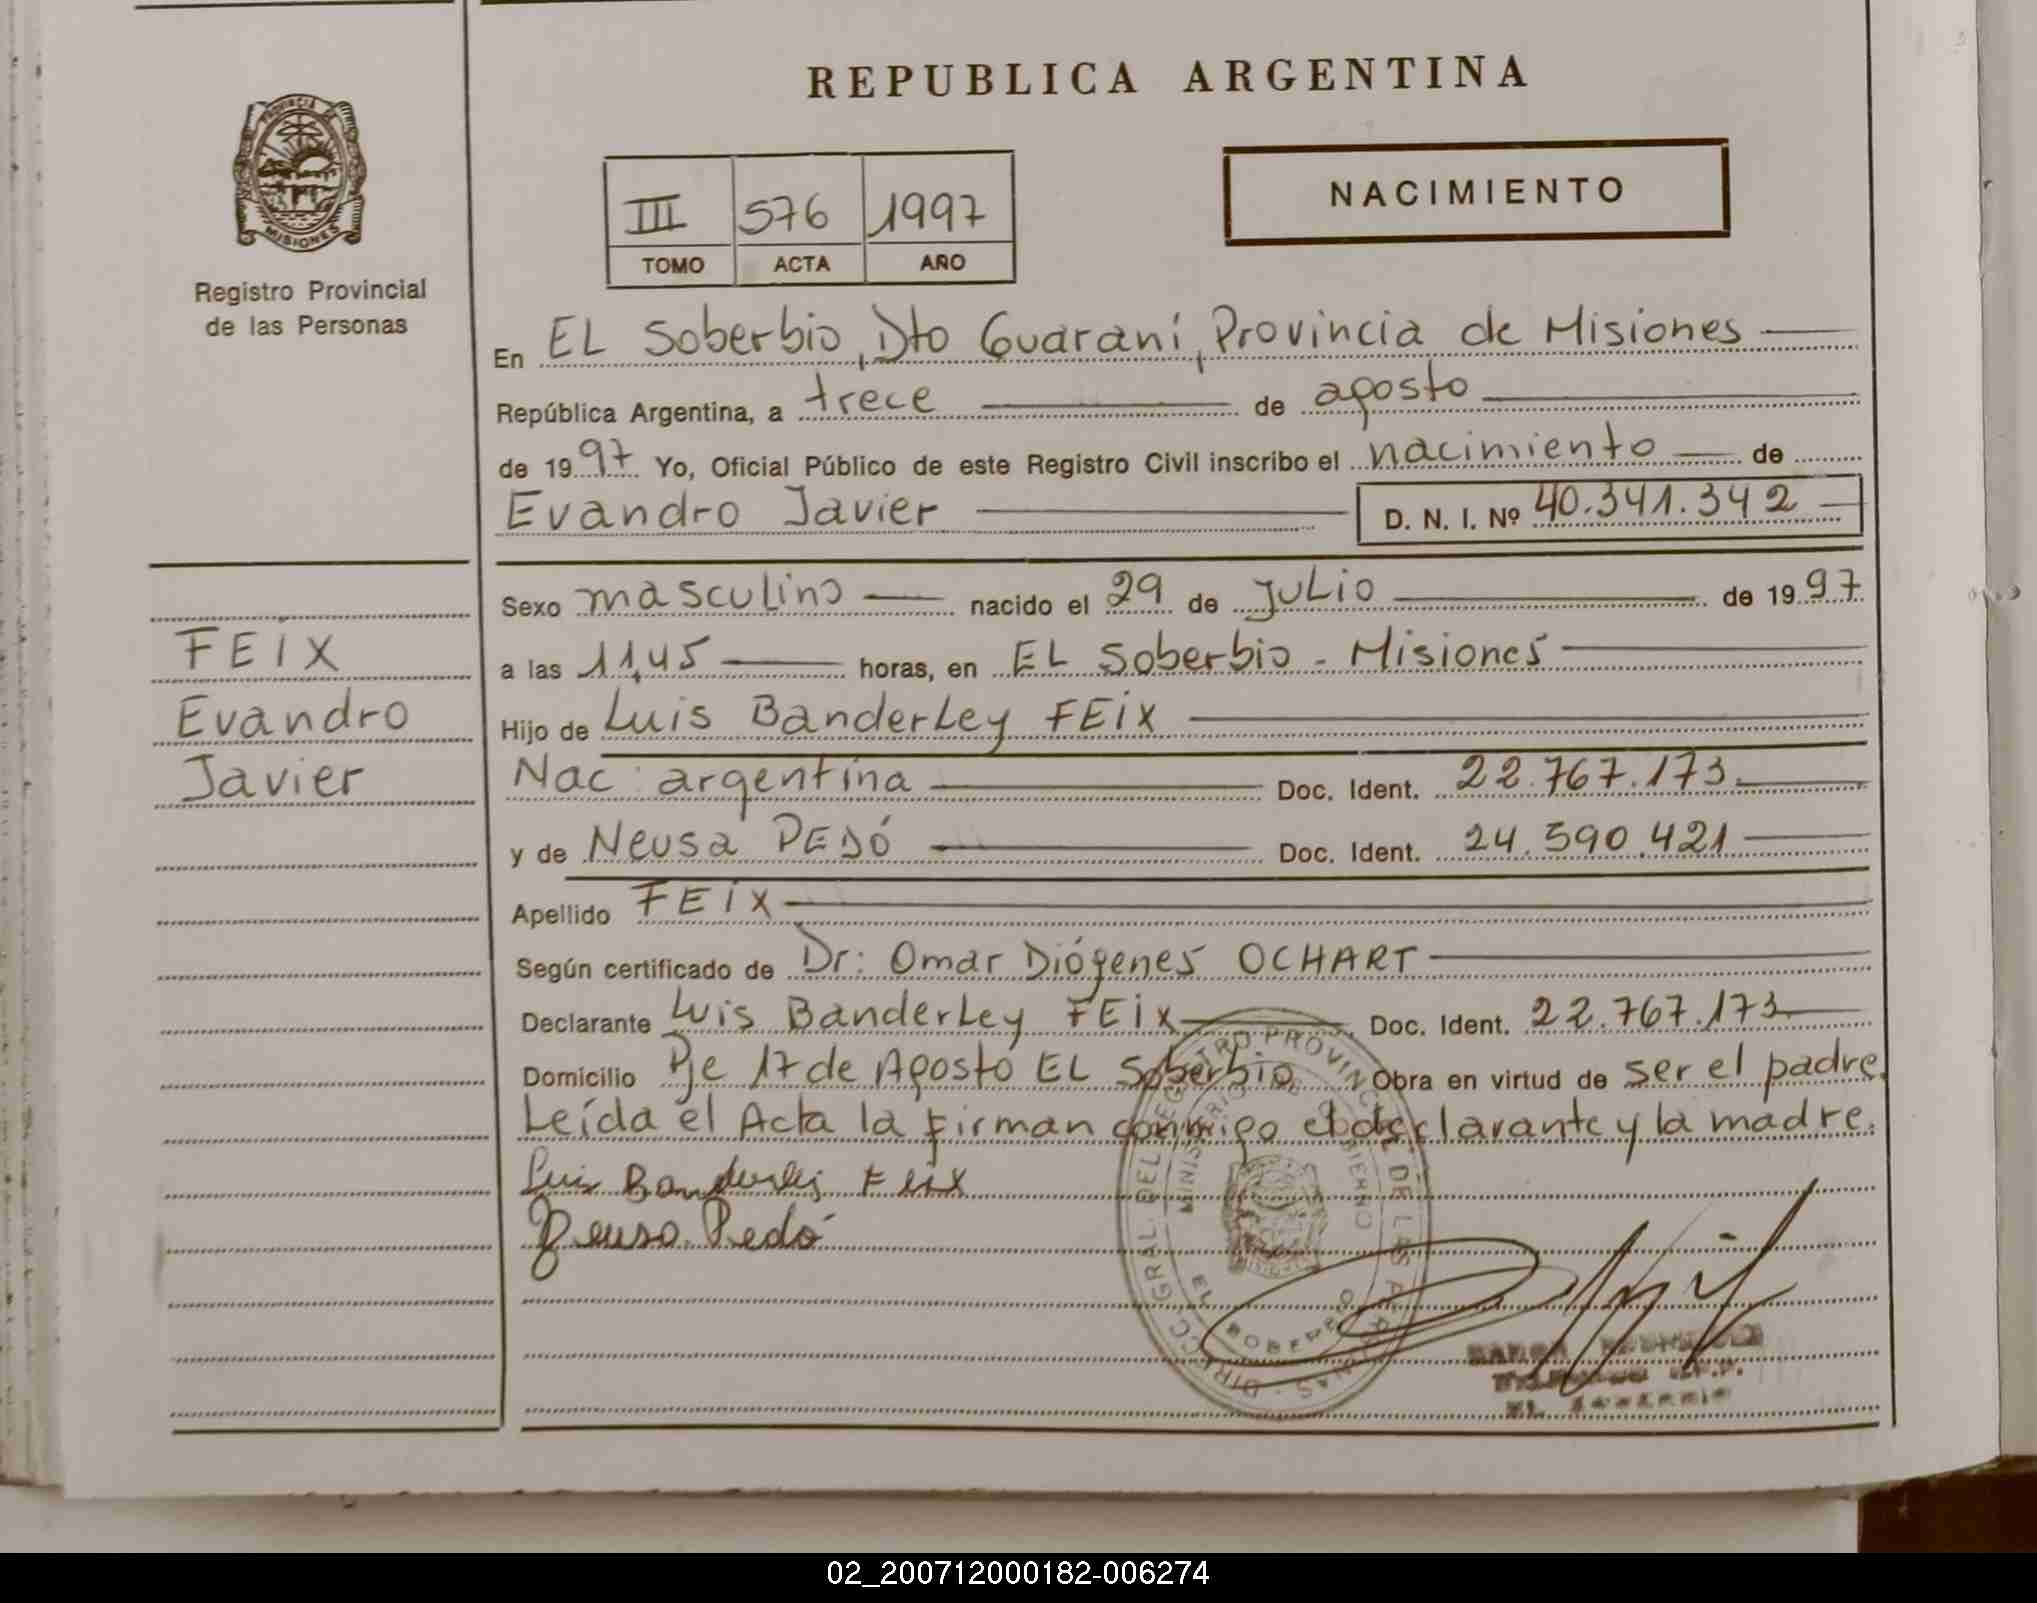 REPUBLICA ARGENTINA
PROVINCIA DE
MISIONES
Registro Provincial
de las Personas
III 576 1997
TOMO ACTA AÑO
NACIMIENTO
En EL Soberbio, Dto Guaraní, Provincia de Misiones
República Argentina, a trece de agosto
de 1997 Yo, Oficial Público de este Registro Civil inscribo el nacimiento de
Evandro Javier D. N. I. Nº 40.341.342
FEIX
Evandro
Javier
Sexo masculino nacido el 29 de JULio de 1997
a las 11,45 horas, en EL Soberbio - Misiones
Hijo de Luis BanderLey FEiX
Nac: argentina Doc. Ident. 22.767.173
y de Neusa PEDÓ Doc. Ident. 24.590.421
Apellido FEiX
Según certificado de Dr: Omar Diógenes OCHART
Declarante Luis BanderLey FEiX Doc. Ident. 22.767.173
Domicilio Pje 17 de Agosto EL Soberbio Obra en virtud de ser el padre.
Leída el Acta la firman conmigo el declarante y la madre.
Luis Banderley Feix
Neusa Pedó
DIRECC. GRAL. DEL REGISTRO PROVINCIAL DE LAS PERSONAS
MINISTERIO DE GOBIERNO
EL SOBERBIO
EL SOBERBIO
02_200712000182-006274